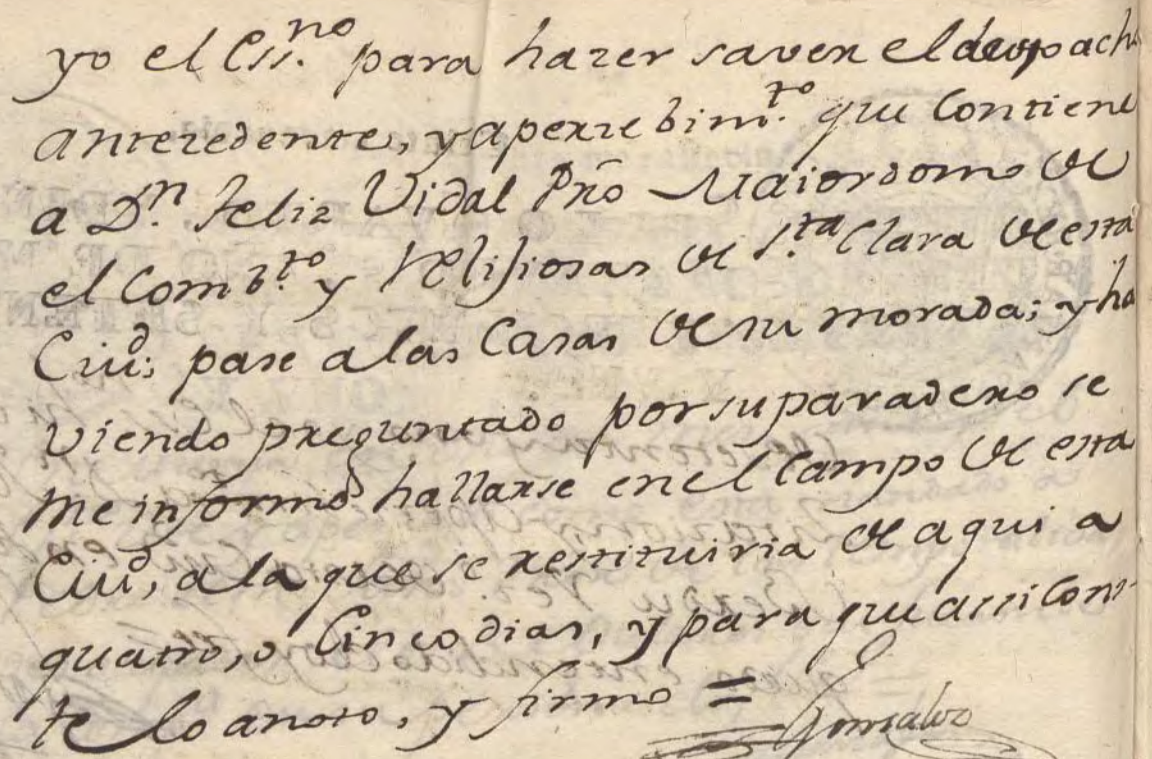 yo el Ess.no para hazer saver el despacho
antezedente, y aperzebim.to que Contiene
a D.n Feliz Vidal Pro Maiordomo de
el Comb.to y Relijiosas de S.ta Clara de esta
Ciud; pase a las Casas de su morada; y ha
viendo preguntado por su paradero se
me informó hallarse en el Campo de esta
Ciud, a la que se restituiria de aqui a
quatro, o Cinco dias, y para que assi Cons-
te lo anoto, y firmo =
Gonsalvo